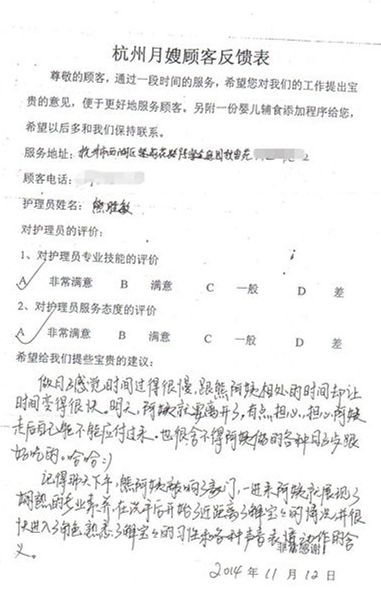 杭州月嫂顾客反馈表
尊敬的顾客，通过一段时间的服务，希望您对我们的工作提出宝
贵的意见，便于更好地服务顾客。另附一份婴儿辅食添加程序给您，
希望以后多和我们保持联系。
服务地址：杭州市西湖区
顾客电话：
护理员姓名：熊胜敏
对护理员的评价：
1、对护理员专业技能的评价
A 非常满意 B 满意 C 一般 D 差
2、对护理员服务态度的评价
A 非常满意 B 满意 C 一般 D 差
希望给我们提些宝贵的建议：
做月子感觉时间过得很慢，跟熊阿姨相处的时间却让
时间变得很快。明天，阿姨就要离开了，有点担心，担心阿姨
走后自己能不能应付过来。也很舍不得阿姨做的各种月子餐，很
好吃的。哈哈:)
记得那天下午，熊阿姨敲响了家门，一进来阿姨就展现了
娴熟的专业素养，在洗手后开始了近距离了解宝宝的情况，并很
快进入了角色，熟悉了解宝宝的习性和各种声音表情动作的含
义。 非常感谢！
2014年11月12日